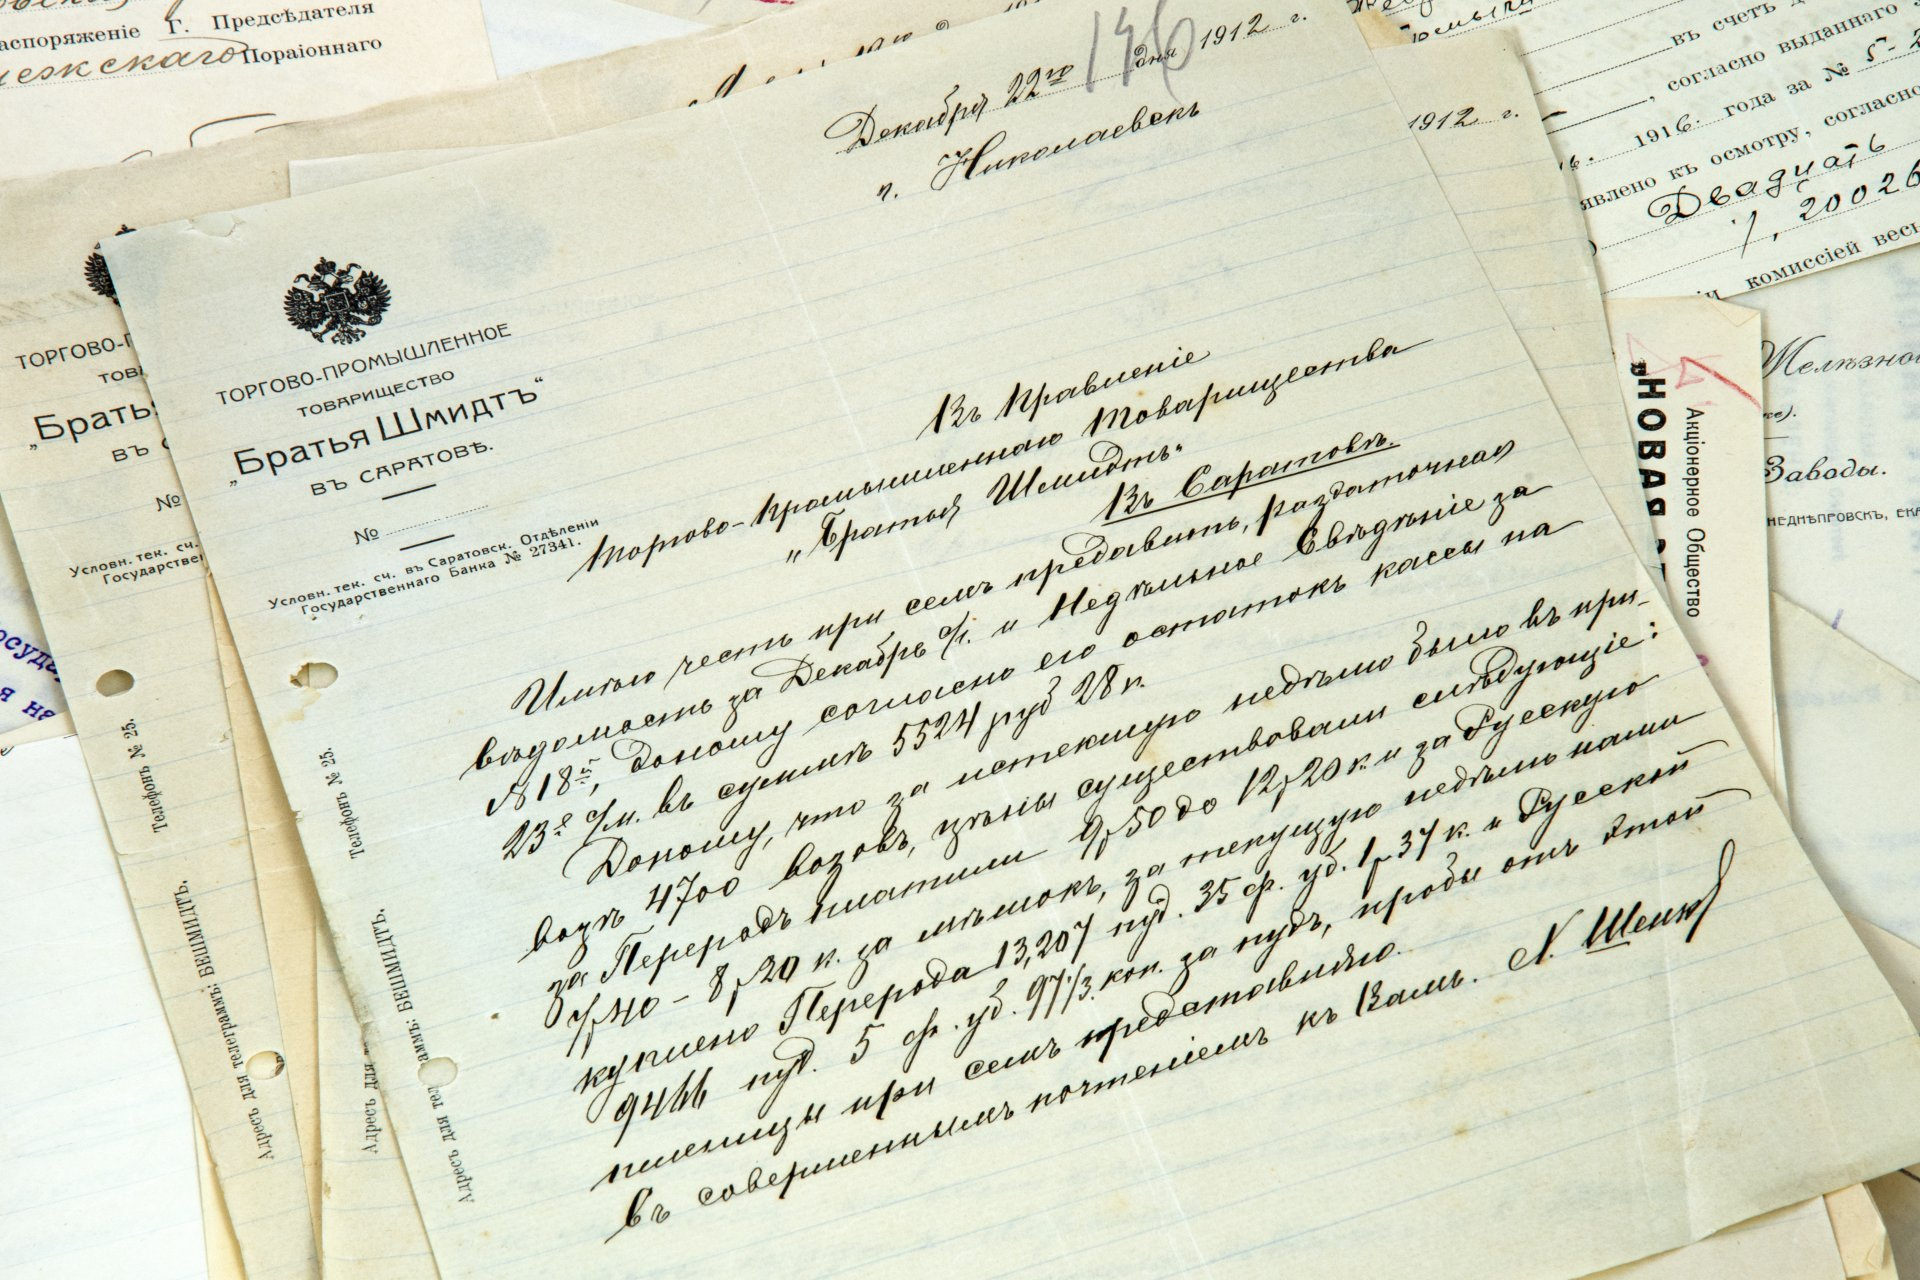 аспоряженіе Г. Предсѣдателя
Пораіоннаго
Декабря 22го дня 1912 г.
146
г. Николаевскъ
1912 г.
ТОРГОВО-ПРОМЫШЛЕННОЕ
ТОВАРИЩЕСТВО
„Братья Шмидтъ“
ВЪ САРАТОВѢ.
№
Условн. тек. сч. въ Саратовск. Отдѣленіи
Государственнаго Банка № 27341.
Телефонъ № 25.
Адресъ для тел граммъ: ВЕШМИДТЪ.
Въ Правленіе
Торгово-Промышленнаго Товарищества
„Братья Шмидтъ“
Въ Саратовѣ.
Имѣю честь при семъ предавить, раздаточная
вѣдомость за Декабрь с/г. и Недѣльное Свѣдѣніе за
№ 18й, доношу согласно его остатокъ кассы на
23е с/м. въ суммѣ 5524 руб 28 к.
Доношу, что за истекшую недѣлю было въ при-
возѣ 4700 возовъ, цѣны существовали слѣдующіе:
за Переродъ платили 9р50 до 12р20 к. и за Русскую
7р40 - 8р20 к. за мѣшокъ, за текущую недѣлю нами
куплено Перерода 13,207 пуд. 35 ф. уб. 1р37 к. и Русской
9466 пуд. 5 ф. уб. 97 1/3 коп. за пудъ, пробы отъ этой
пшеницы при семъ представляю.
Въ совершеннымъ почтеніемъ къ Вамъ.
ТОРГОВО-П
ТОВА
„Братья
ВЪ С
№
Условн. тек. сч.
Государствен
Телефонъ № 25.
Адресъ для телеграммъ: ВЕШМИДТЪ.
Телефонъ № 25.
Адресъ для
въ счетъ
, согласно выданнаго
1916. года за № 5-2
явлено къ осмотру, согласно
Двадцать
1, 20026
комиссіей весн
Желѣзно
Заводы.
„НОВАЯ
Акціонерное Общество